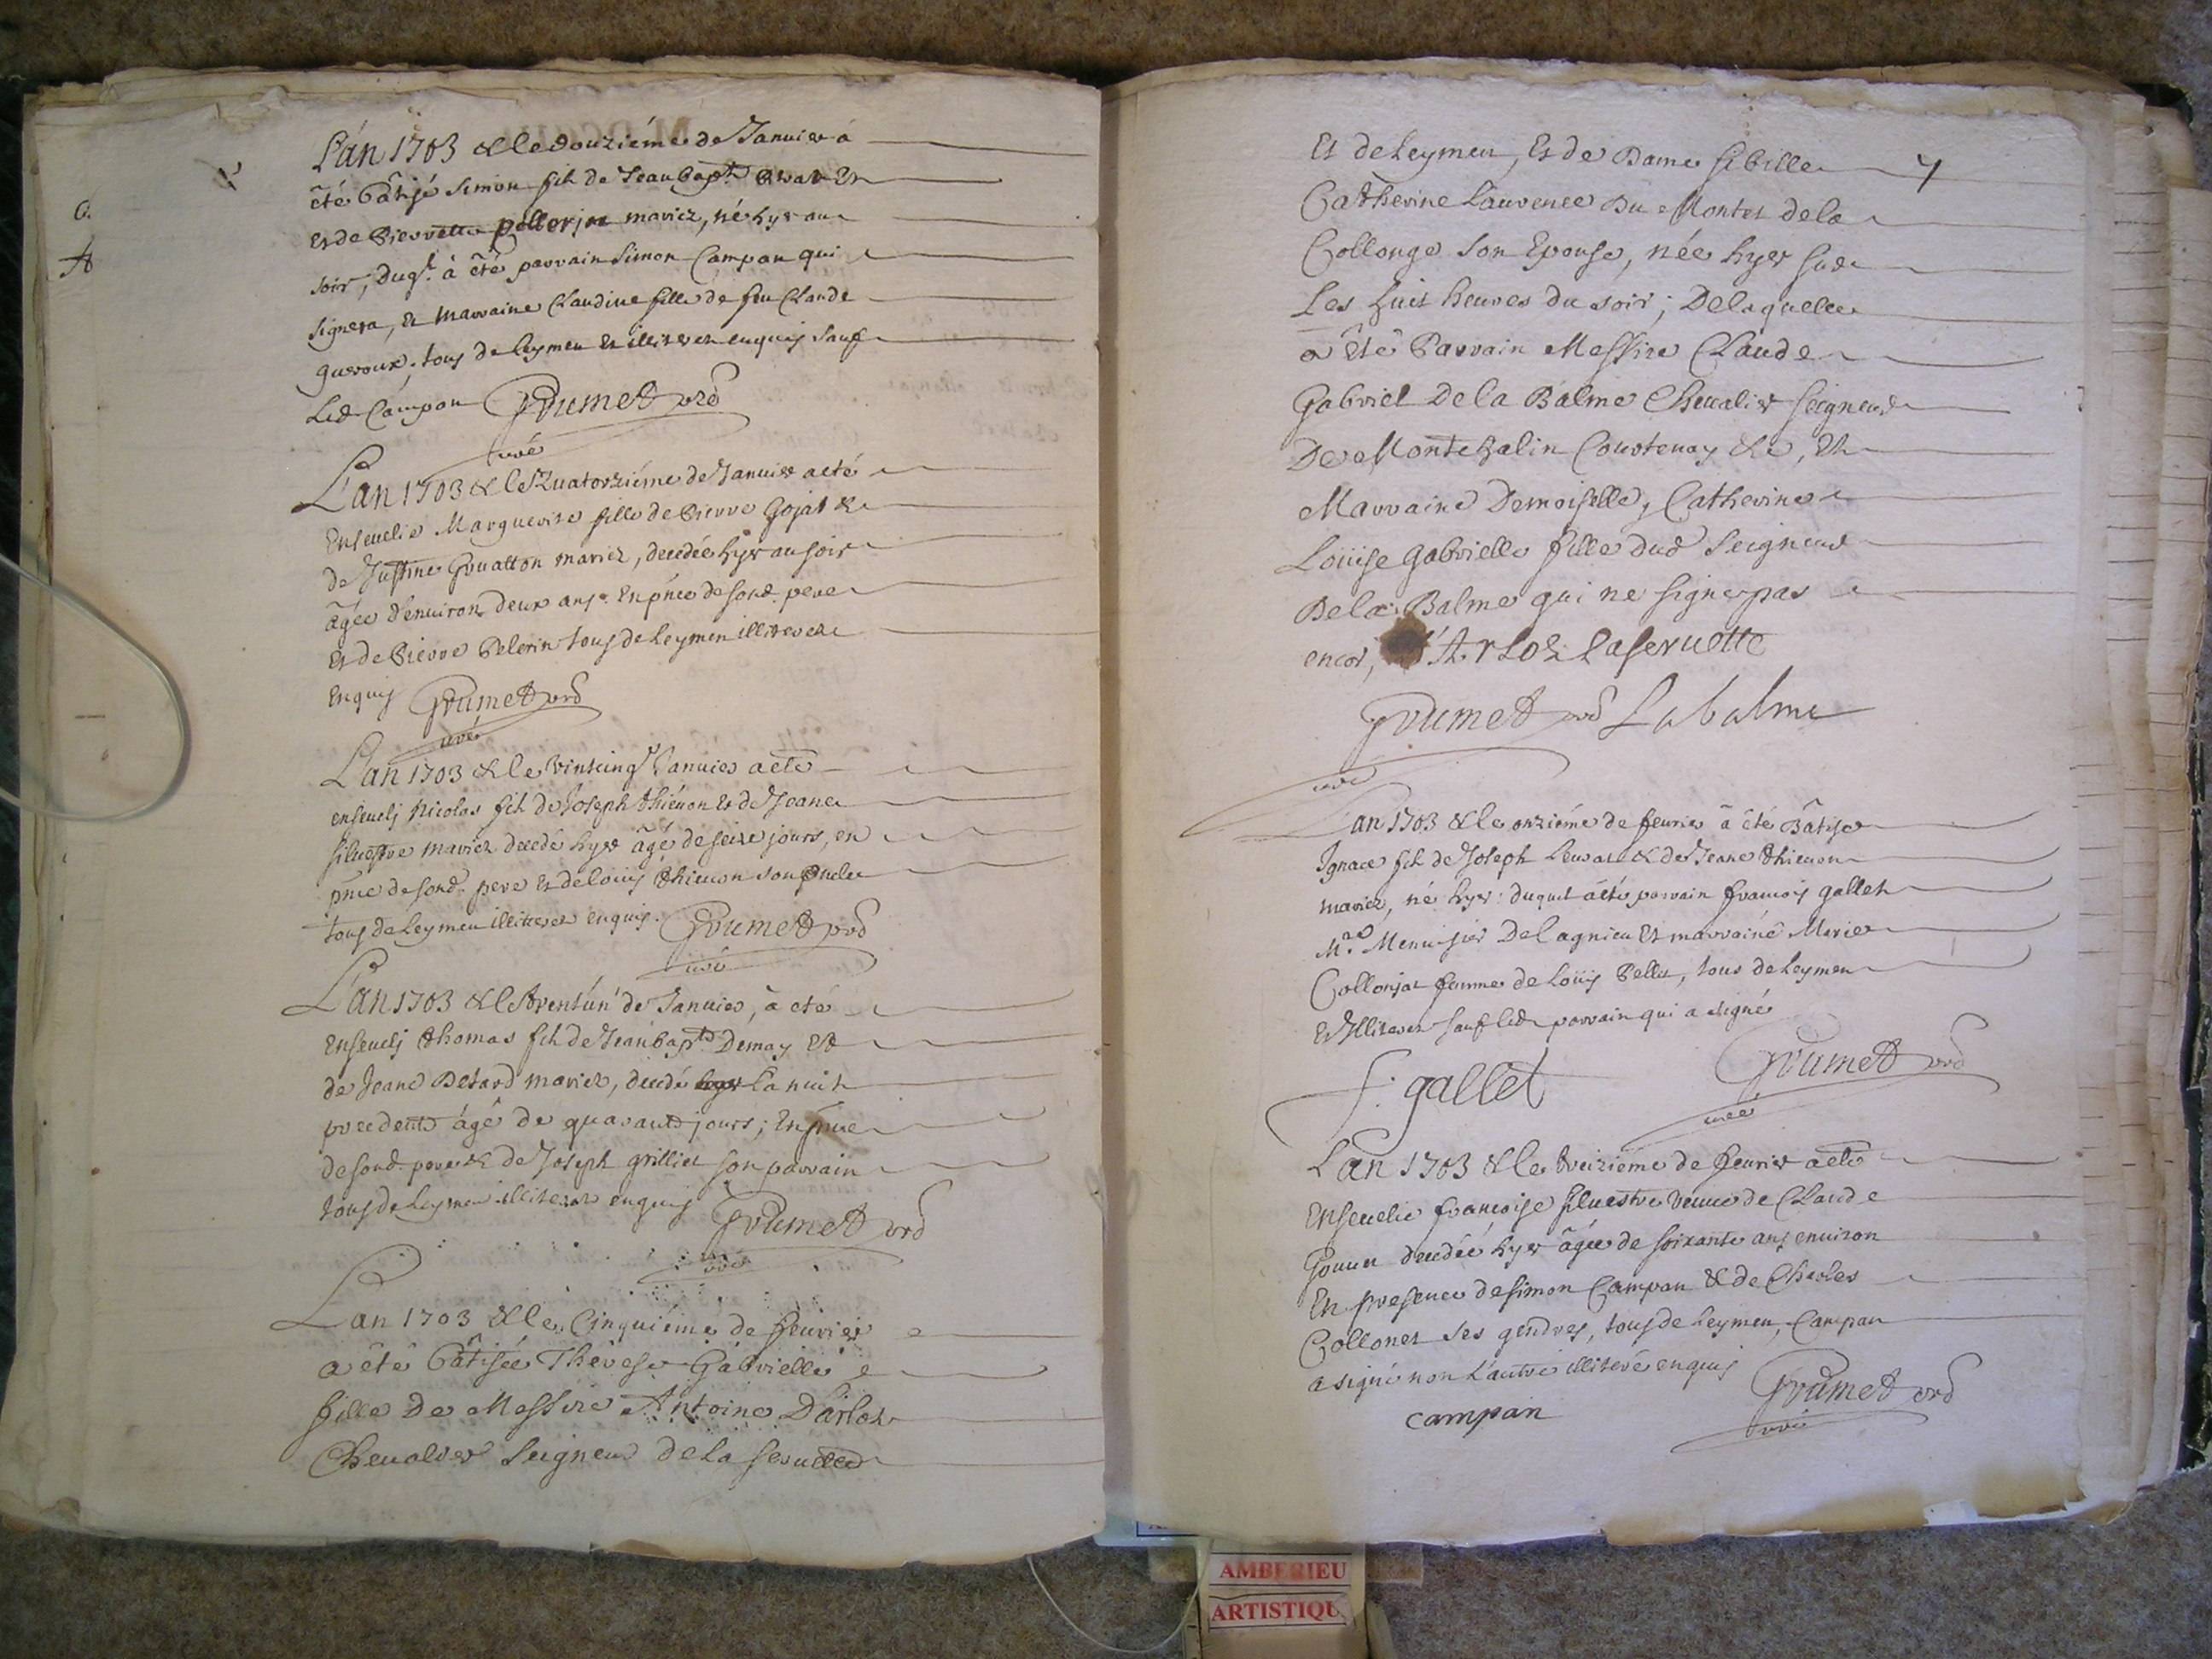 L'an 1703 & le douziéme de Januier á
été bâtisé Simon fils de Jean bapt. et
et de Pierrette pellerin mariez, né hyer au
soir, duq.l à été parrain Simon Campan qui
signera, et marraine Claudine fille de feu Claude
gueroux; tous de Leymen et illiterez enquis sauf
Led. Campan Grumet vré
curé
L'an 1703 & le Quatorziéme de Januier a eté
Enseuelie Marguerite fille de Pierre Gojat &
de Justine Gruatton mariez, decedée hyer au soir
âgée d'enuiron deux ans. En pñce de sond. pere
et de Pierre Pelerin tous de Leymen illiterez
Enquis Grumet vré
curé
L'an 1703 & le vintcinq Januier a eté
enseueli Nicolas fils de Joseph thieuon et de Jeane
siluestre mariez decedé hyer âgé de seize jours, en
pñce de sond. pere et de Louis thieuon son oncle
tous de Leymen illiterez enquis. Grumet vré
curé
L'an 1703 & le trent'un de Januier, à eté
Enseueli thomas fils de Jean bapt. Demay et
de Jeane Detard mariez, decedé la nuit
precedente âgé de quarante jours; En pñce
de sond. pere & de Joseph grillier son parrain
tous de Leymen illiterez enquis Grumet vré
curé
L'an 1703 & le Cinquiéme de feurier
a êté bâtisée Thérese Gabrielle
fille de Messire Antoine D'arloz
Cheualier Seigneur de La seruette
Et de Leymen, Et de Dame sibille 4
Catherine Laurence Du Montet de la
Collonge son Epouse, née hyer sur
Les huit heures du soir; De laquelle
a êté Parrain Messire Claude
Gabriel De la Balme Cheualier seigneur
De Montchalin Courtenay &c, Et
Marraine Demoiselle, Catherine
Loüise Gabrielle fille dud Seigneur
De la Balme qui ne signe pas
encor, D'Arloz Laseruette
Grumet vré Labalme
curé
L'an 1703 & le onziéme de feurier â été Bâtisé
Ignace fils de Joseph & de Jeane thieuon
mariez, né hyer: duquel à été parrain francois gallet
M.e Menuisier De Lagnieu Et marraine Marie
Collonjat femme de Loüis Pellet, tous de Leymen
Et illiterez sauf led. parrain qui a signé
f. gallet Grumet vré
curé
L'an 1703 & le treiziéme de feurier a eté
Enseuelie francoise siluestre veuue de Claude
decedée hyer âgée de soixante ans enuiron
En presence de Simon Campan & de Charles
Collonet ses gendres, tous de Leymen, Campan
a signé non L'autre illiteré enquis
campan Grumet vré
curé
AMBERIEU
ARTISTIQU